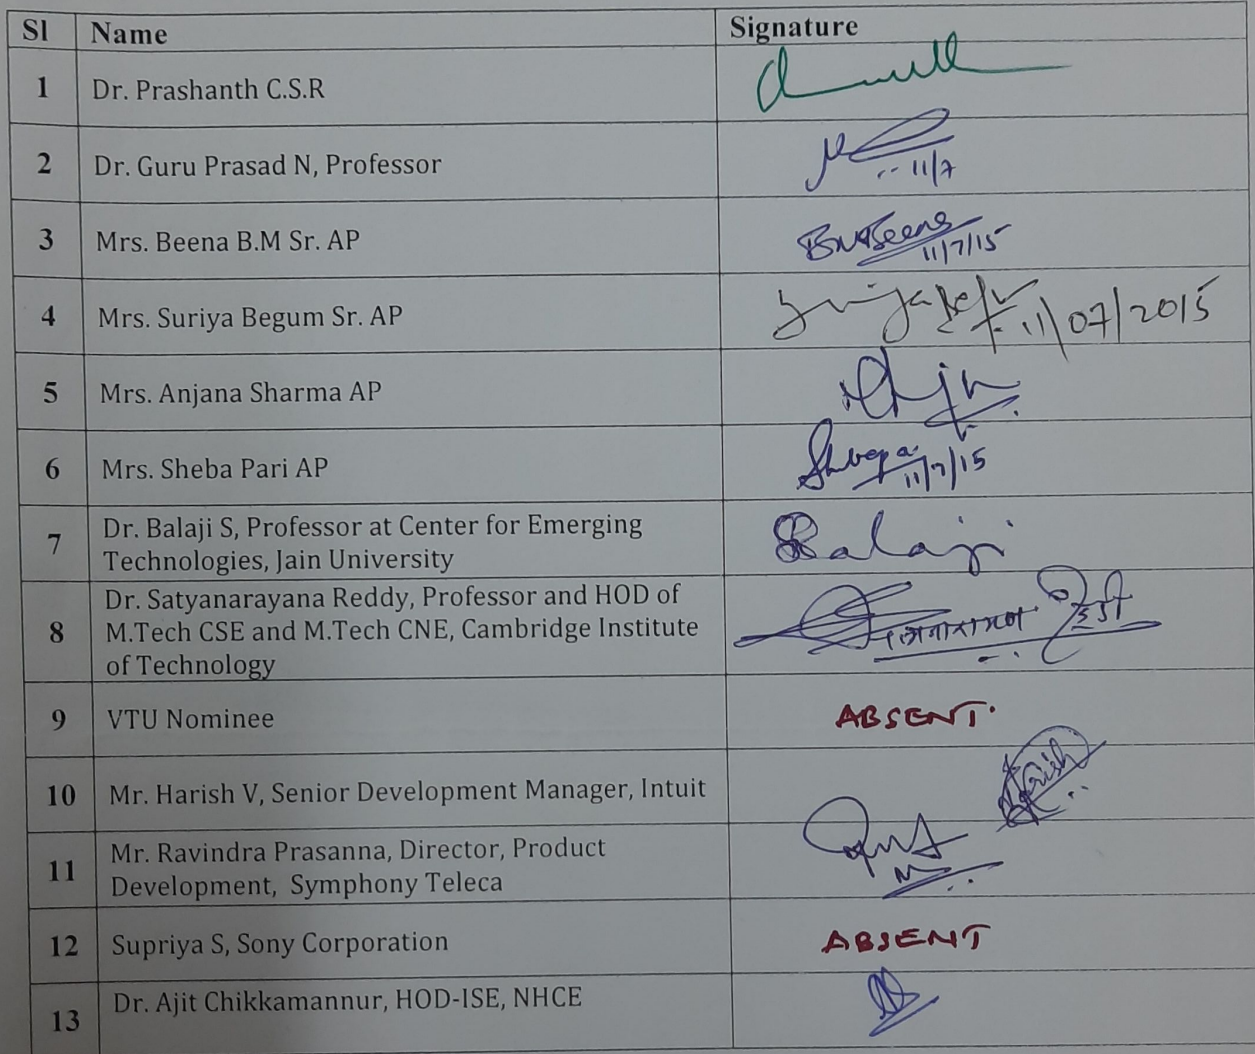 Sl Name Signature
1 Dr. Prashanth C.S.R
2 Dr. Guru Prasad N, Professor 11/7
3 Mrs. Beena B.M Sr. AP 11/7/15
4 Mrs. Suriya Begum Sr. AP 11/07/2015
5 Mrs. Anjana Sharma AP
6 Mrs. Sheba Pari AP 11/7/15
7 Dr. Balaji S, Professor at Center for Emerging
Technologies, Jain University Balaji
8 Dr. Satyanarayana Reddy, Professor and HOD of
M.Tech CSE and M.Tech CNE, Cambridge Institute
of Technology
9 VTU Nominee ABSENT.
10 Mr. Harish V, Senior Development Manager, Intuit Harish
11 Mr. Ravindra Prasanna, Director, Product
Development, Symphony Teleca
12 Supriya S, Sony Corporation ABSENT
13 Dr. Ajit Chikkamannur, HOD-ISE, NHCE